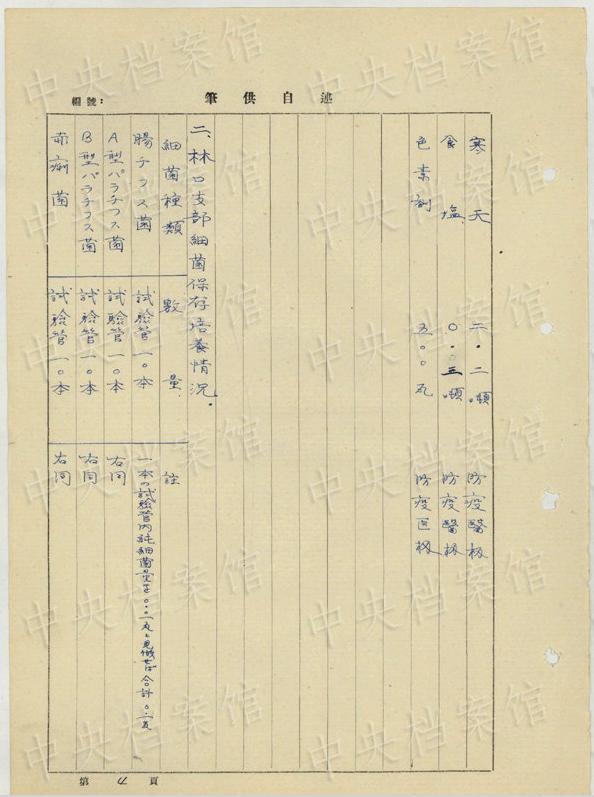 編號：
筆供自述
寒天 二.二噸 防疫醫極
食塩 〇.五噸 防疫醫極
色素剤 五〇〇瓦 防疫医极
二、林口支部細菌保存培養情況.
細菌種類 数量 註
腸チフス菌 試験管一〇本 一本の試験管内純細菌量を〇.〇一瓦と見做せば合計〇.一瓦
A型パラチフス菌 試験管一〇本 右同
B型パラチフス菌 試験管一〇本 右同
赤痢菌 試験管一〇本 右同
第 頁
中央档案馆